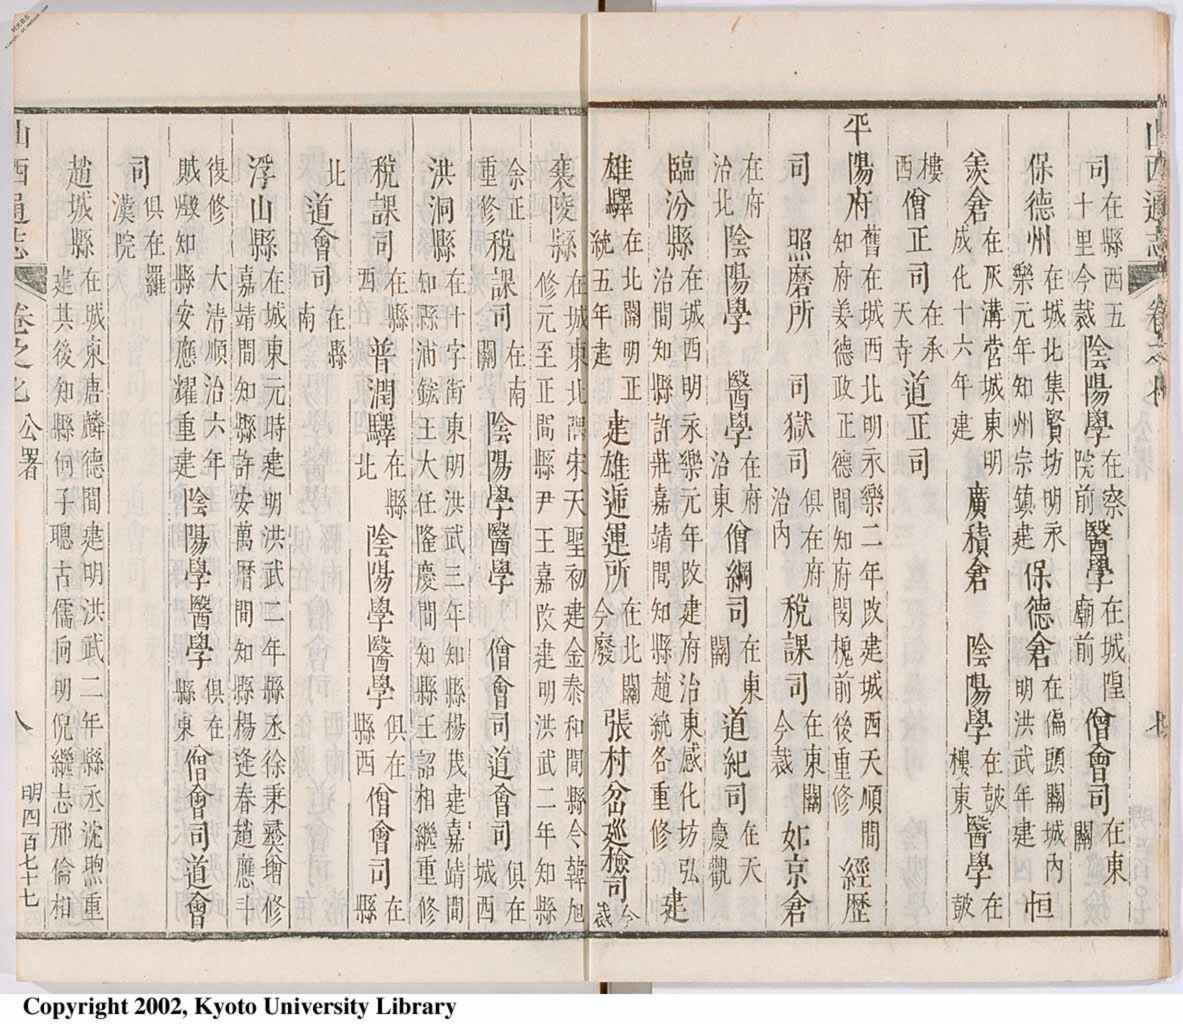 司 在縣西五十里今裁 陰陽學 在察院前 醫學 在城隍廟前 僧會司 在東關
保德州 在城北集賢坊明永樂元年知州宗鎮建 保德倉 在偏頭關城內明洪武年建 恒
羨倉 在灰溝营城東明成化十六年建 廣積倉 陰陽學 在鼓樓東 醫學 在鼓
樓西 僧正司 在承天寺 道正司
平陽府 舊在城西北明永樂二年改建城西天順間知府姜德政正德間知府閔槐前後重修 經歷
司 照磨所 司獄司 俱在府治內 稅課司 在東關今裁 如京倉
在府治北 陰陽學 醫學 在府治東 僧綱司 在東關 道紀司 在天慶觀
臨汾縣 在城西明永樂元年改建府治東感化坊弘治間知縣許莊嘉靖間知縣趙統各重修 建
雄驛 在北關明正統五年建 建雄遞運所 在北關今廢 張村岔巡檢司 今裁
襄陵縣 在城東北隅宋天聖初建金泰和間縣令韓旭修元至正間縣尹王嘉改建明洪武二年知縣
余正重修 稅課司 在南關 陰陽學醫學 僧會司道會司 俱在城西
洪洞縣 在十字街東明洪武三年知縣楊茂建嘉靖間知縣浦鋐王大任隆慶間知縣王詔相繼重修
稅課司 在縣西 普潤驛 在縣北 陰陽學醫學 俱在縣西 僧會司 在縣
北 道會司 在縣南
浮山縣 在城東元時建明洪武二年縣丞徐秉彝增修嘉靖間知縣許安萬曆間知縣楊逢春趙應斗
復修 大清順治六年賊燬知縣安應耀重建 陰陽學醫學 俱在縣東 僧會司道會
司 俱在羅漢院
趙城縣 在城東唐麟德間建明洪武二年縣丞沈煦重建其後知縣何子聰古儒向明倪繼志邢倫相
山西通志 卷之七 公署 八 明四百七十七
Copyright 2002, Kyoto University Library